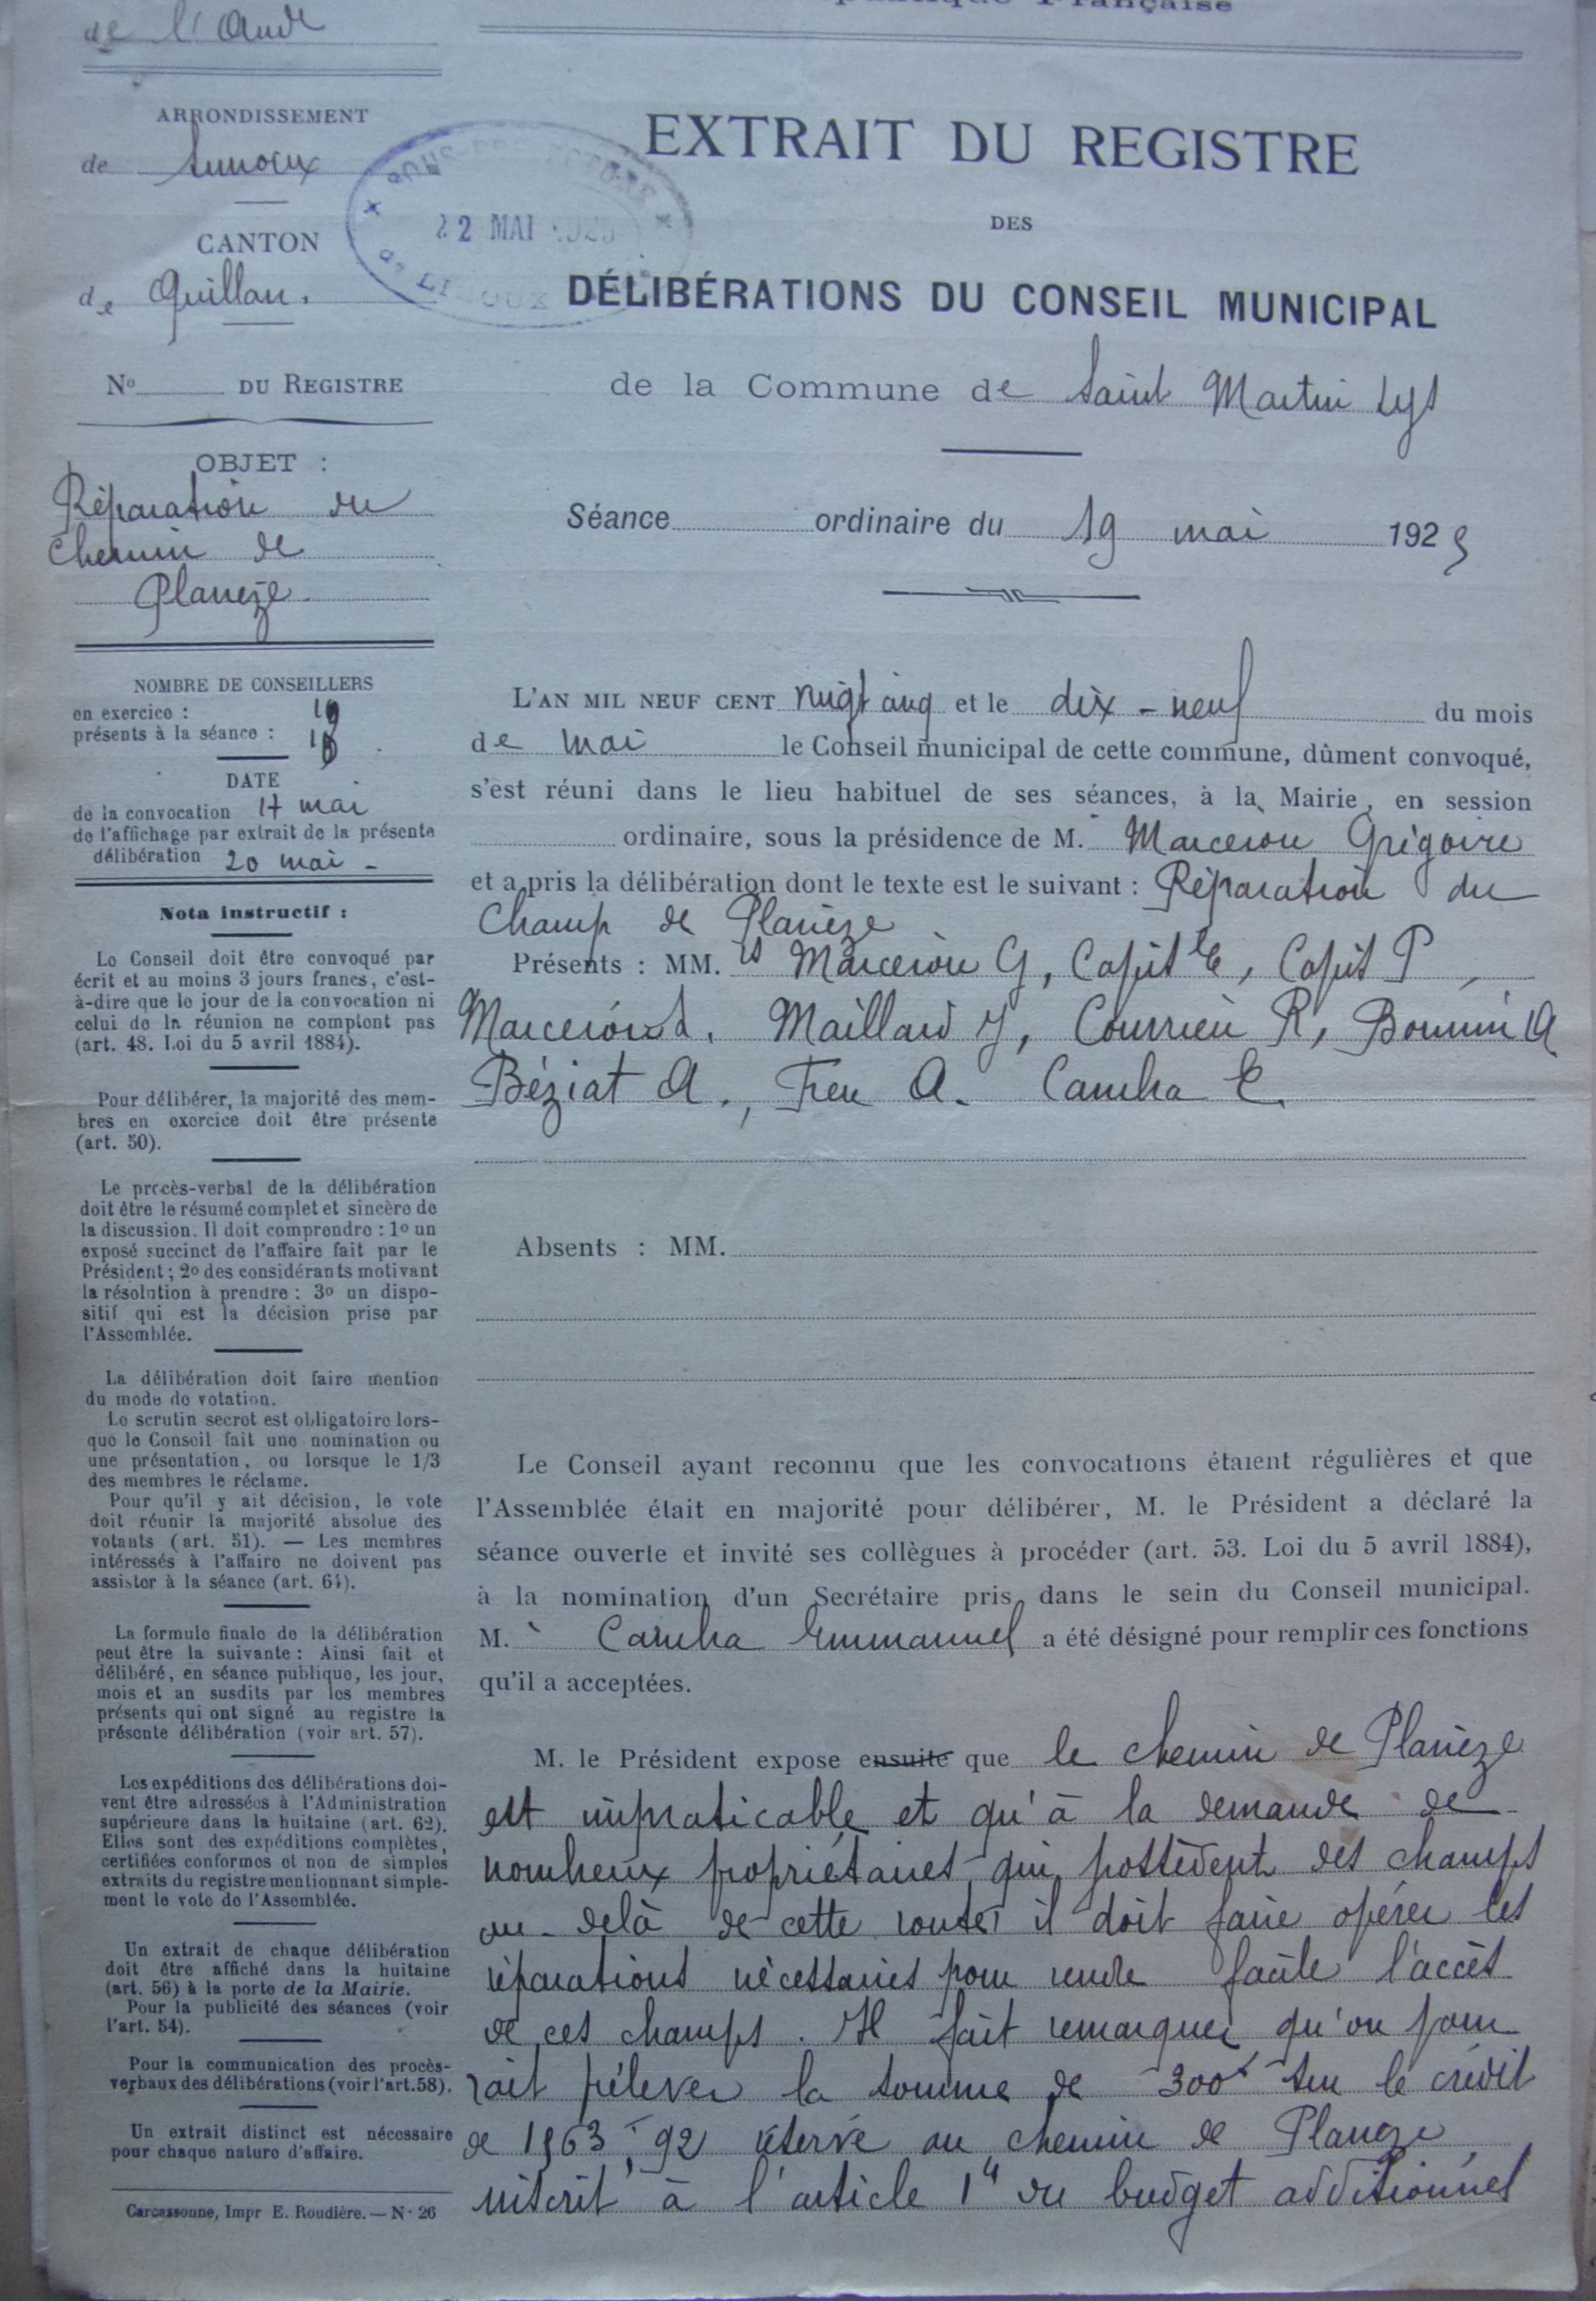 publique Française
de l'Aude
ARRONDISSEMENT
de Limoux
CANTON
de Quillan.
22 MAI
de LIMOUX
No DU REGISTRE
OBJET :
Réparation du
chemin de
Planèze
NOMBRE DE CONSEILLERS
en exercice :
présents à la séance :
DATE
de la convocation 17 mai
de l'affichage par extrait de la présente
délibération 20 mai -
Nota instructif :
Le Conseil doit être convoqué par
écrit et au moins 3 jours francs, c'est-
à-dire que le jour de la convocation ni
celui de la réunion ne comptent pas
(art. 48. Loi du 5 avril 1884).
Pour délibérer, la majorité des mem-
bres en exercice doit être présente
(art. 50).
Le procès-verbal de la délibération
doit être le résumé complet et sincère de
la discussion. Il doit comprendre : 1o un
exposé succinct de l'affaire fait par le
Président ; 2o des considérants motivant
la résolution à prendre : 3o un dispo-
sitif qui est la décision prise par
l'Assemblée.
La délibération doit faire mention
du mode de votation.
Le scrutin secret est obligatoire lors-
que le Conseil fait une nomination ou
une présentation, ou lorsque le 1/3
des membres le réclame.
Pour qu'il y ait décision, le vote
doit réunir la majorité absolue des
votants (art. 51). — Les membres
intéressés à l'affaire ne doivent pas
assister à la séance (art. 64).
La formule finale de la délibération
peut être la suivante : Ainsi fait et
délibéré, en séance publique, les jour,
mois et an susdits par les membres
présents qui ont signé au registre la
présente délibération (voir art. 57).
Les expéditions des délibérations doi-
vent être adressées à l'Administration
supérieure dans la huitaine (art. 62).
Elles sont des expéditions complètes,
certifiées conformes et non de simples
extraits du registre mentionnant simple-
ment le vote de l'Assemblée.
Un extrait de chaque délibération
doit être affiché dans la huitaine
(art. 56) à la porte de la Mairie.
Pour la publicité des séances (voir
l'art. 54).
Pour la communication des procès-
verbaux des délibérations (voir l'art. 58).
Un extrait distinct est nécessaire
pour chaque nature d'affaire.
Carcassonne, Impr E. Roudière. — N· 26
EXTRAIT DU REGISTRE
DES
DÉLIBÉRATIONS DU CONSEIL MUNICIPAL
de la Commune de Saint Martin Lys
Séance ordinaire du 19 mai 1925
L'AN MIL NEUF CENT vingt cinq et le dix - neuf du mois
de mai le Conseil municipal de cette commune, dûment convoqué,
s'est réuni dans le lieu habituel de ses séances, à la Mairie, en session
ordinaire, sous la présidence de M. Marcerou Grégoire
et a pris la délibération dont le texte est le suivant : Réparation du
Champ de Planèze
Présents : MM. rs Marcerou G, Capit E, Capit P,
Marcerou L. Maillard J, Courrieu R, Bonnin A
Béziat A., Freu A. Camba E
Absents : MM.
Le Conseil ayant reconnu que les convocations étaient régulières et que
l'Assemblée était en majorité pour délibérer, M. le Président a déclaré la
séance ouverte et invité ses collègues à procéder (art. 53. Loi du 5 avril 1884),
à la nomination d'un Secrétaire pris dans le sein du Conseil municipal.
M. Camba Emmanuel a été désigné pour remplir ces fonctions
qu'il a acceptées.
M. le Président expose ensuite que le chemin de Planèze
est impraticable et qu'à la demande de
nombeux propriétaires qui possèdent des champs
au - delà de cette route il doit faire opérer les
réparations nécessaires pour rendre facile l'accès
de ces champs. Il fait remarquer qu'on pour
rait prélever la somme de 300f sur le crédit
de 1963f,92 réservé au chemin de Planeze
inscrit à l'article 1er du budget additionnel